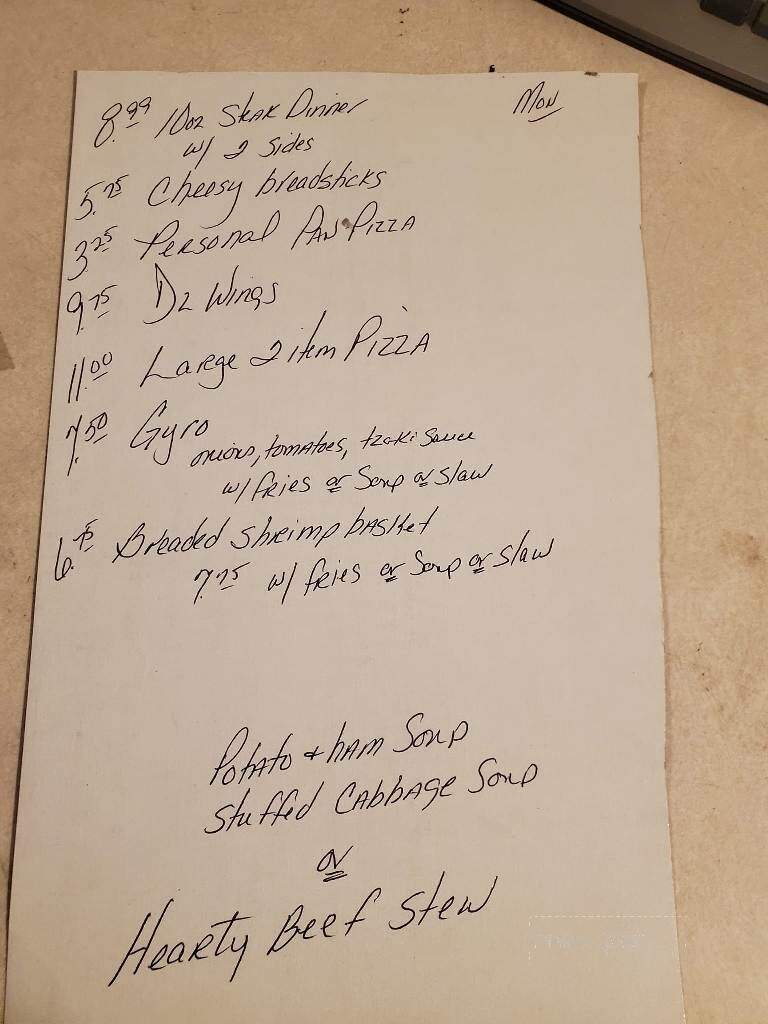 Mon
8.99 10oz Steak Dinner
w/ 2 sides
5.75 Cheesy breadsticks
3.25 Personal Pan Pizza
9.75 Dz Wings
11.00 Large 2 item Pizza
7.50 Gyro
onions, tomatoes, tzaki sauce
w/ fries or Soup or slaw
6.75 Breaded shrimp basket
7.75 w/ fries or Soup or slaw
Potato + ham Soup
Stuffed Cabbage Soup
or
Hearty Beef Stew